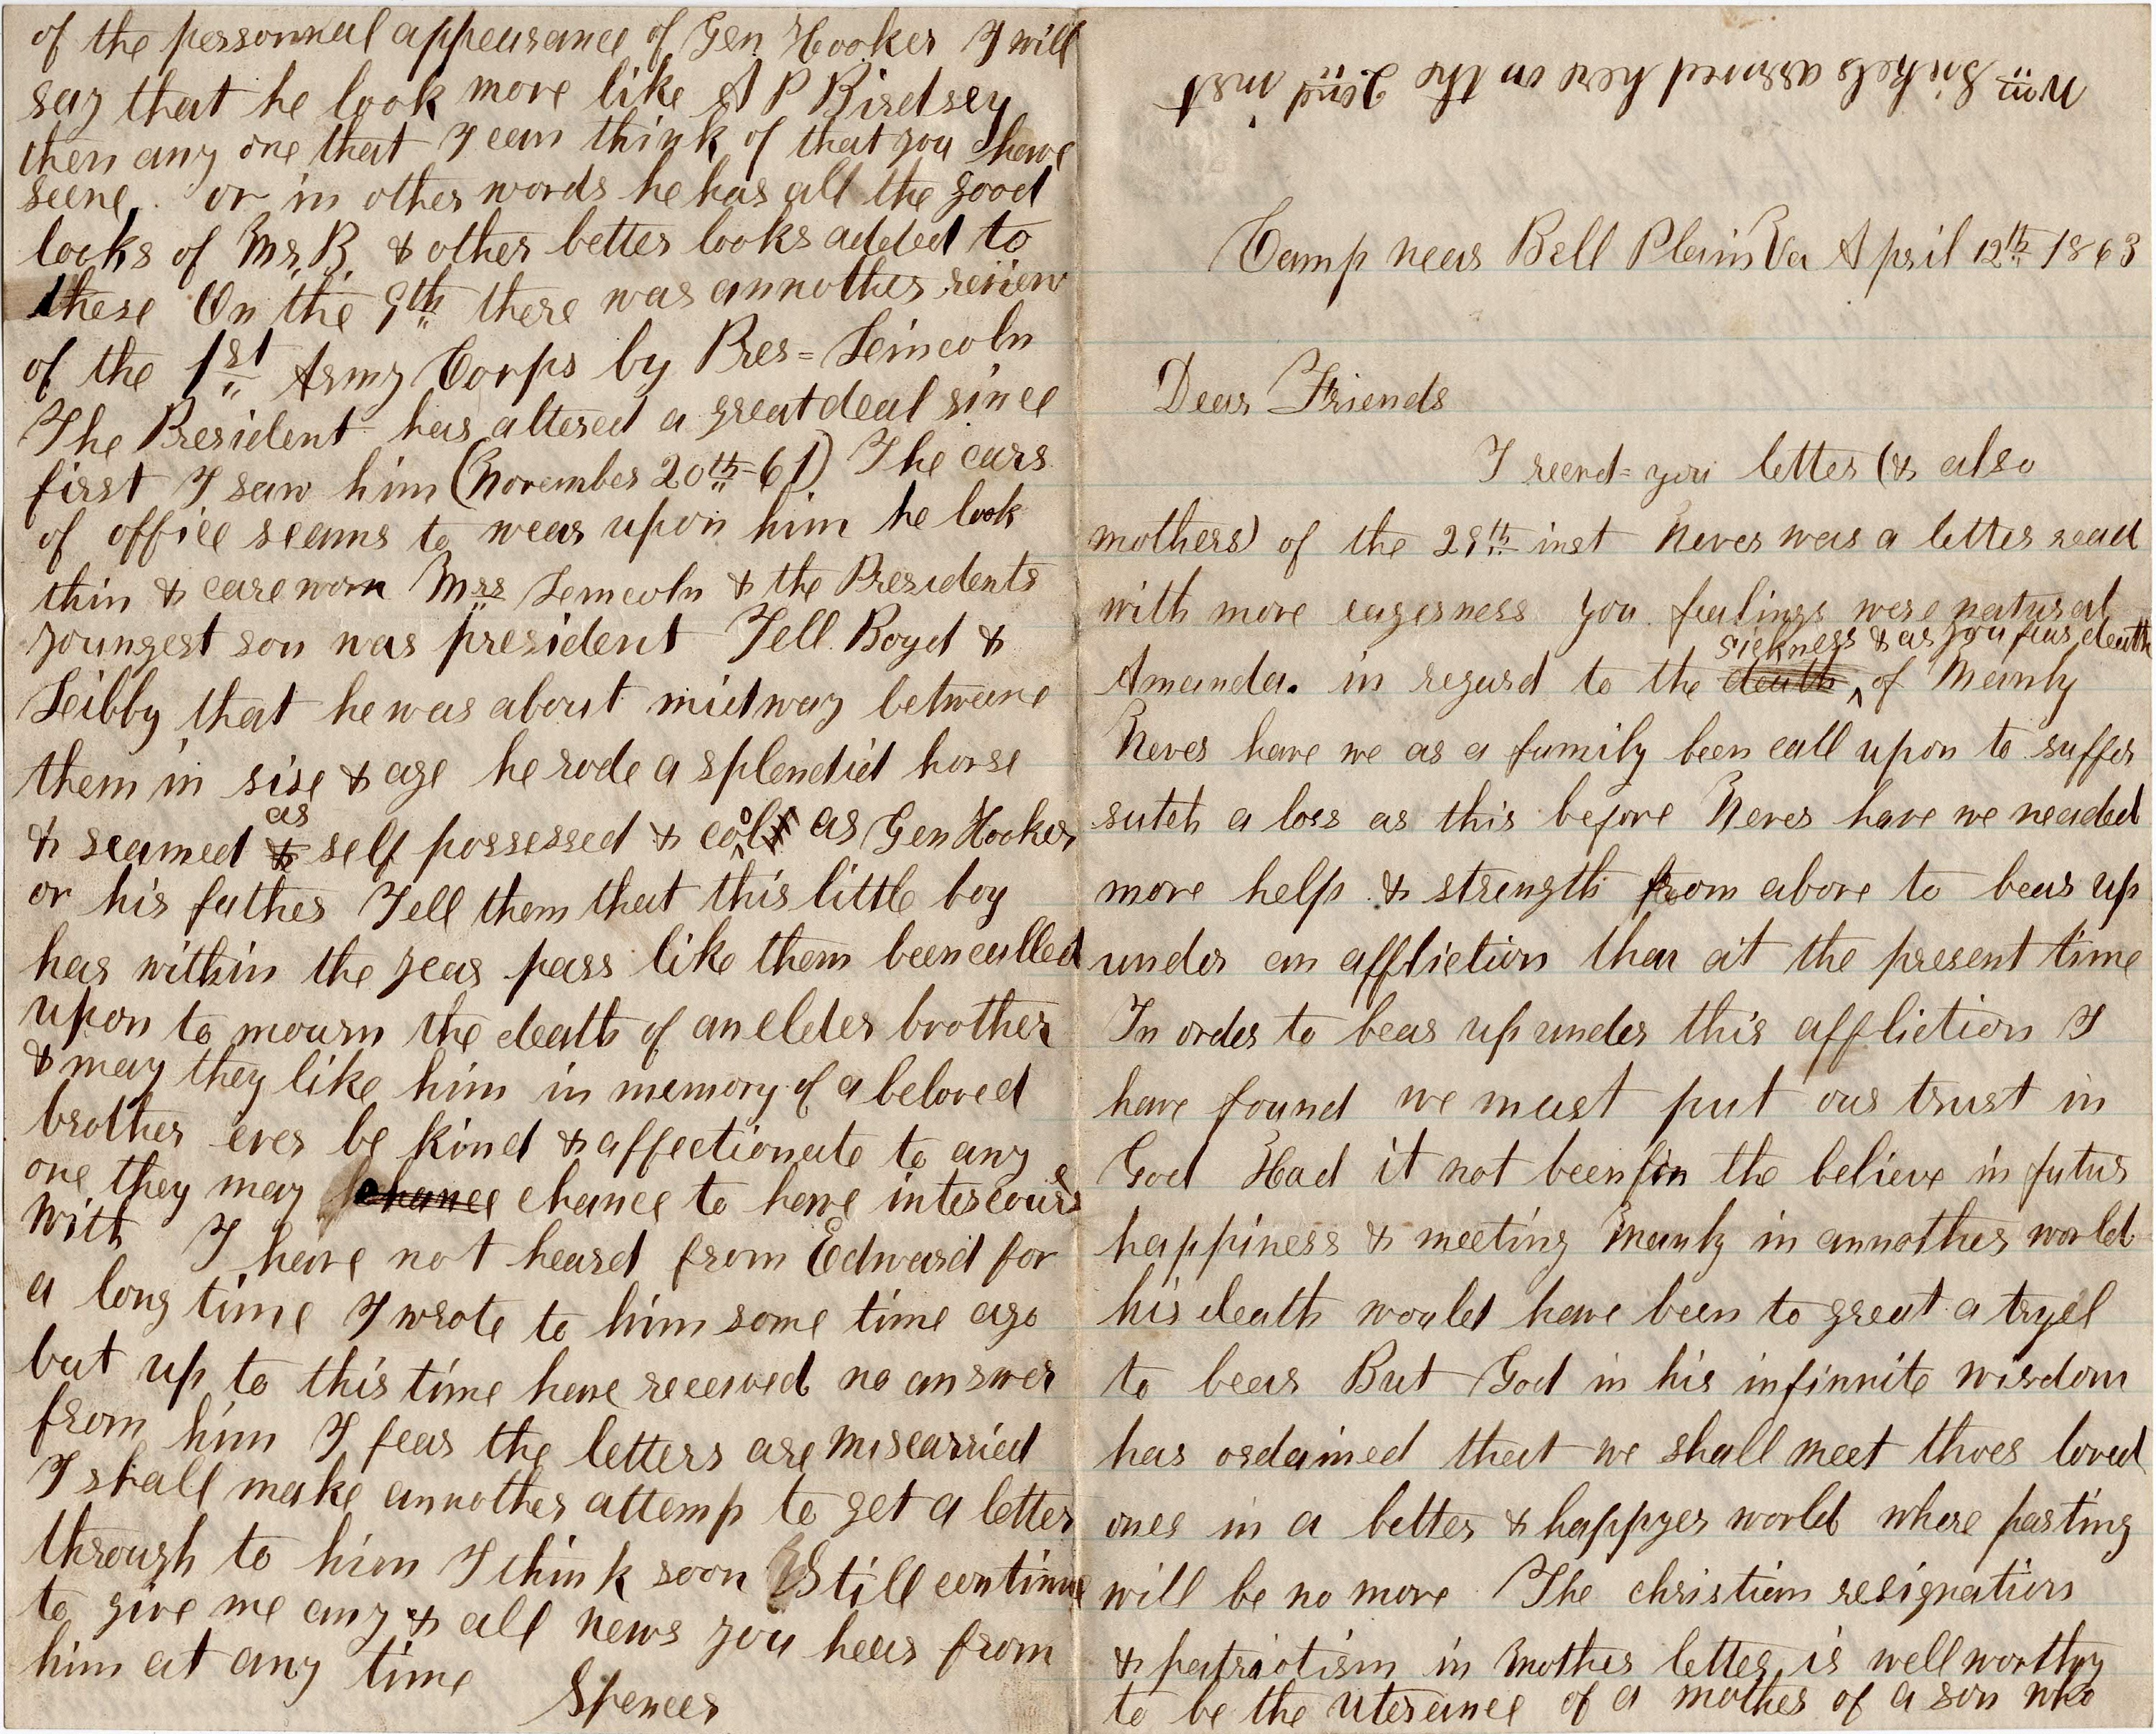 of the personnal appearance of Gen Hooker I will
say that he look more like A P Birdsey
then any one that I can think of that you have
seene. or in other words he has all the good
looks of Mr. B. & other better looks added to
these On the 9th there was annother reviem
of the 1st Army Corps by Pres= Leincoln
The President has altered a great deal since
first I saw him (November 20th=61) The cars
of office seams to wear upon him he look
thin & careworn Mrs Lemcoln & the Presidents
youngest son was president Tell Boyd &
Leibby that he was about midway betweene
them in sise & age he rode a splendid horse
& seamed as self possessed & cool as Gen Hooker
or his father Tell them that this little boy
has within the year pass like them been called
upon to mourn the death of an elder brother
& may they like him in memory of a beloved
brother ever be kind & affectionate to any
one they may chance chance to have intercourse
with I have not heard from Edward for
a long time I wrote to him some time ago
but up to this time have received no answer
from him I fear the letters are miscarried
I shall make annother attemp to get a letter
through to him I think soon Still continue
to give me any & all news you hear from
him at any time Spencer
Mr Sichels arrived here on the 2nd inst.
Camp near Bell Plain Va April 12th 1863
Dear Friends
I recrd= you letter (& also
mothers) of the 29th inst Never was a letter read
with more eagerness you feelings were natural
Amanda. in regard to the death sickness & as you fear death of Manly
Never have we as a family been call upon to suffer
sutch a loss as this before Never have we neaded
more help & strength from above to bear up
under an affliction than at the present time
In order to bear up under this affliction I
have found we must put our trust in
God Had it not been for the believe in futur
happiness & meeting Manly in annother world
his death would have been to great a tryel
to bear But God in his infinnite wisdom
has ordained that we shall meet thoes loved
ones in a better & happyer world where parting
will be no more The christian resignation
& patriotism in Mother letter is well worthy
to be the uterance of a mother of a son who